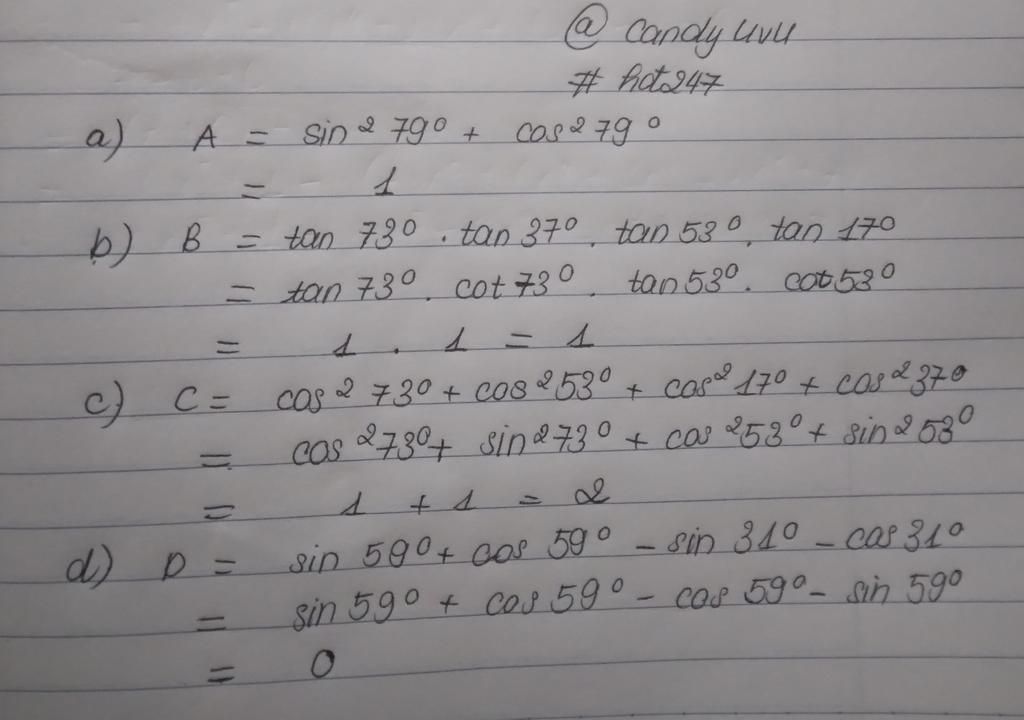 @ candyuvu
# hot247
a) A = sin² 79⁰ + cos² 79⁰
= 1
b) B = tan 73⁰ . tan 37⁰ . tan 53⁰ . tan 17⁰
= tan 73⁰ . cot 73⁰ . tan 53⁰ . cot 53⁰
= 1 . 1 = 1
c) C = cos² 73⁰ + cos² 53⁰ + cos² 17⁰ + cos² 37⁰
= cos² 73⁰ + sin² 73⁰ + cos² 53⁰ + sin² 53⁰
= 1 + 1 = 2
d) D = sin 59⁰ + cos 59⁰ - sin 31⁰ - cos 31⁰
= sin 59⁰ + cos 59⁰ - cos 59⁰ - sin 59⁰
= 0